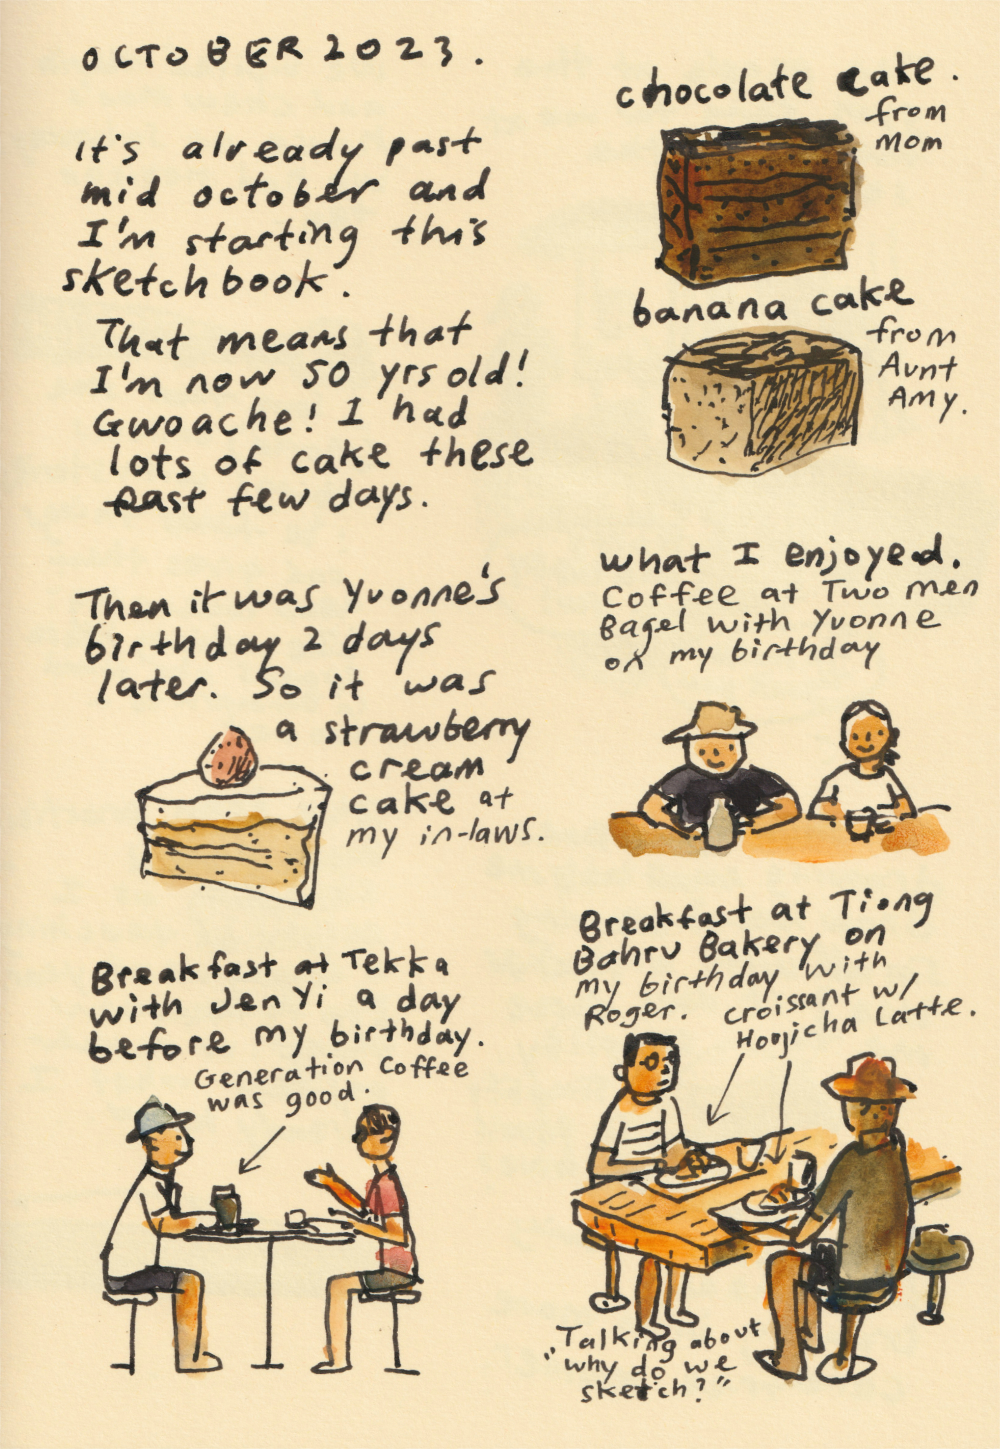 OCTOBER 2023.
It's already past
mid october and
I'm starting this
sketchbook.
That means that
I'm now 50 yrs old!
Gwoache! I had
lots of cake these
past few days.
Then it was Yvonne's
birthday 2 days
later. So it was
a strawberry
cream
cake at
my in-laws.
Breakfast at Tekka
with Jen Yi a day
before my birthday.
Generation Coffee
was good.
chocolate cake.
from
Mom
banana cake
from
Aunt
Amy.
what I enjoyed.
Coffee at Two men
Bagel with Yvonne
on my birthday
Breakfast at Tiong
Bahru Bakery on
my birthday with
Roger.
croissant w/
Hoojicha Latte.
"Talking about
why do we
sketch?"